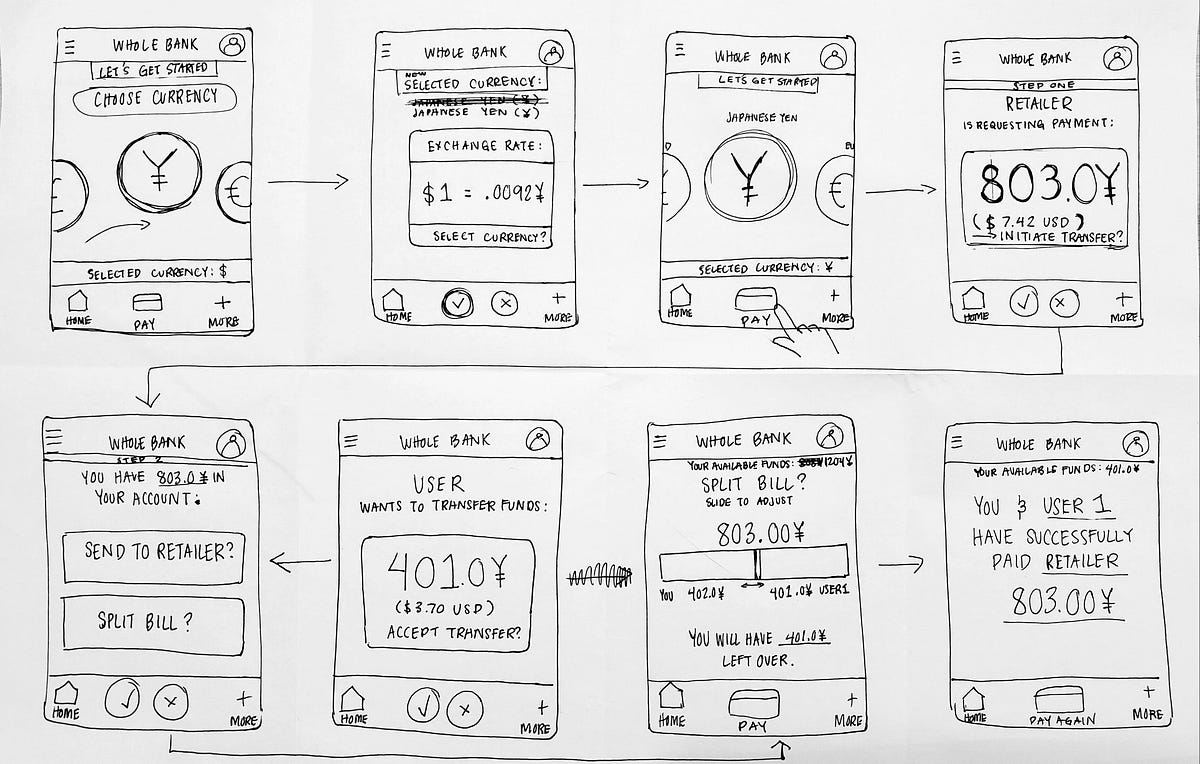 WHOLE BANK
LET'S GET STARTED
CHOOSE CURRENCY
€ ¥ €
SELECTED CURRENCY: $
HOME PAY MORE
WHOLE BANK
NOW
SELECTED CURRENCY:
JAPANESE YEN (¥)
JAPANESE YEN (¥)
EXCHANGE RATE:
$1 = .0092¥
SELECT CURRENCY?
HOME MORE
WHOLE BANK
LET'S GET STARTED
JAPANESE YEN
O EU
¥ €
SELECTED CURRENCY: ¥
HOME PAY MORE
WHOLE BANK
STEP ONE
RETAILER
IS REQUESTING PAYMENT:
803.0¥
($7.42 USD)
INITIATE TRANSFER?
HOME MORE
WHOLE BANK
STEP 2
YOU HAVE 803.0¥ IN
YOUR ACCOUNT:
SEND TO RETAILER?
SPLIT BILL?
HOME MORE
WHOLE BANK
USER
WANTS TO TRANSFER FUNDS:
401.0¥
($3.70 USD)
ACCEPT TRANSFER?
HOME MORE
WHOLE BANK
YOUR AVAILABLE FUNDS: 1204¥
SPLIT BILL?
SLIDE TO ADJUST
803.00¥
YOU 402.0¥ 401.0¥ USER1
YOU WILL HAVE 401.0¥
LEFT OVER.
HOME PAY MORE
WHOLE BANK
YOUR AVAILABLE FUNDS: 401.0¥
YOU & USER 1
HAVE SUCCESSFULLY
PAID RETAILER
803.00¥
HOME PAY AGAIN MORE